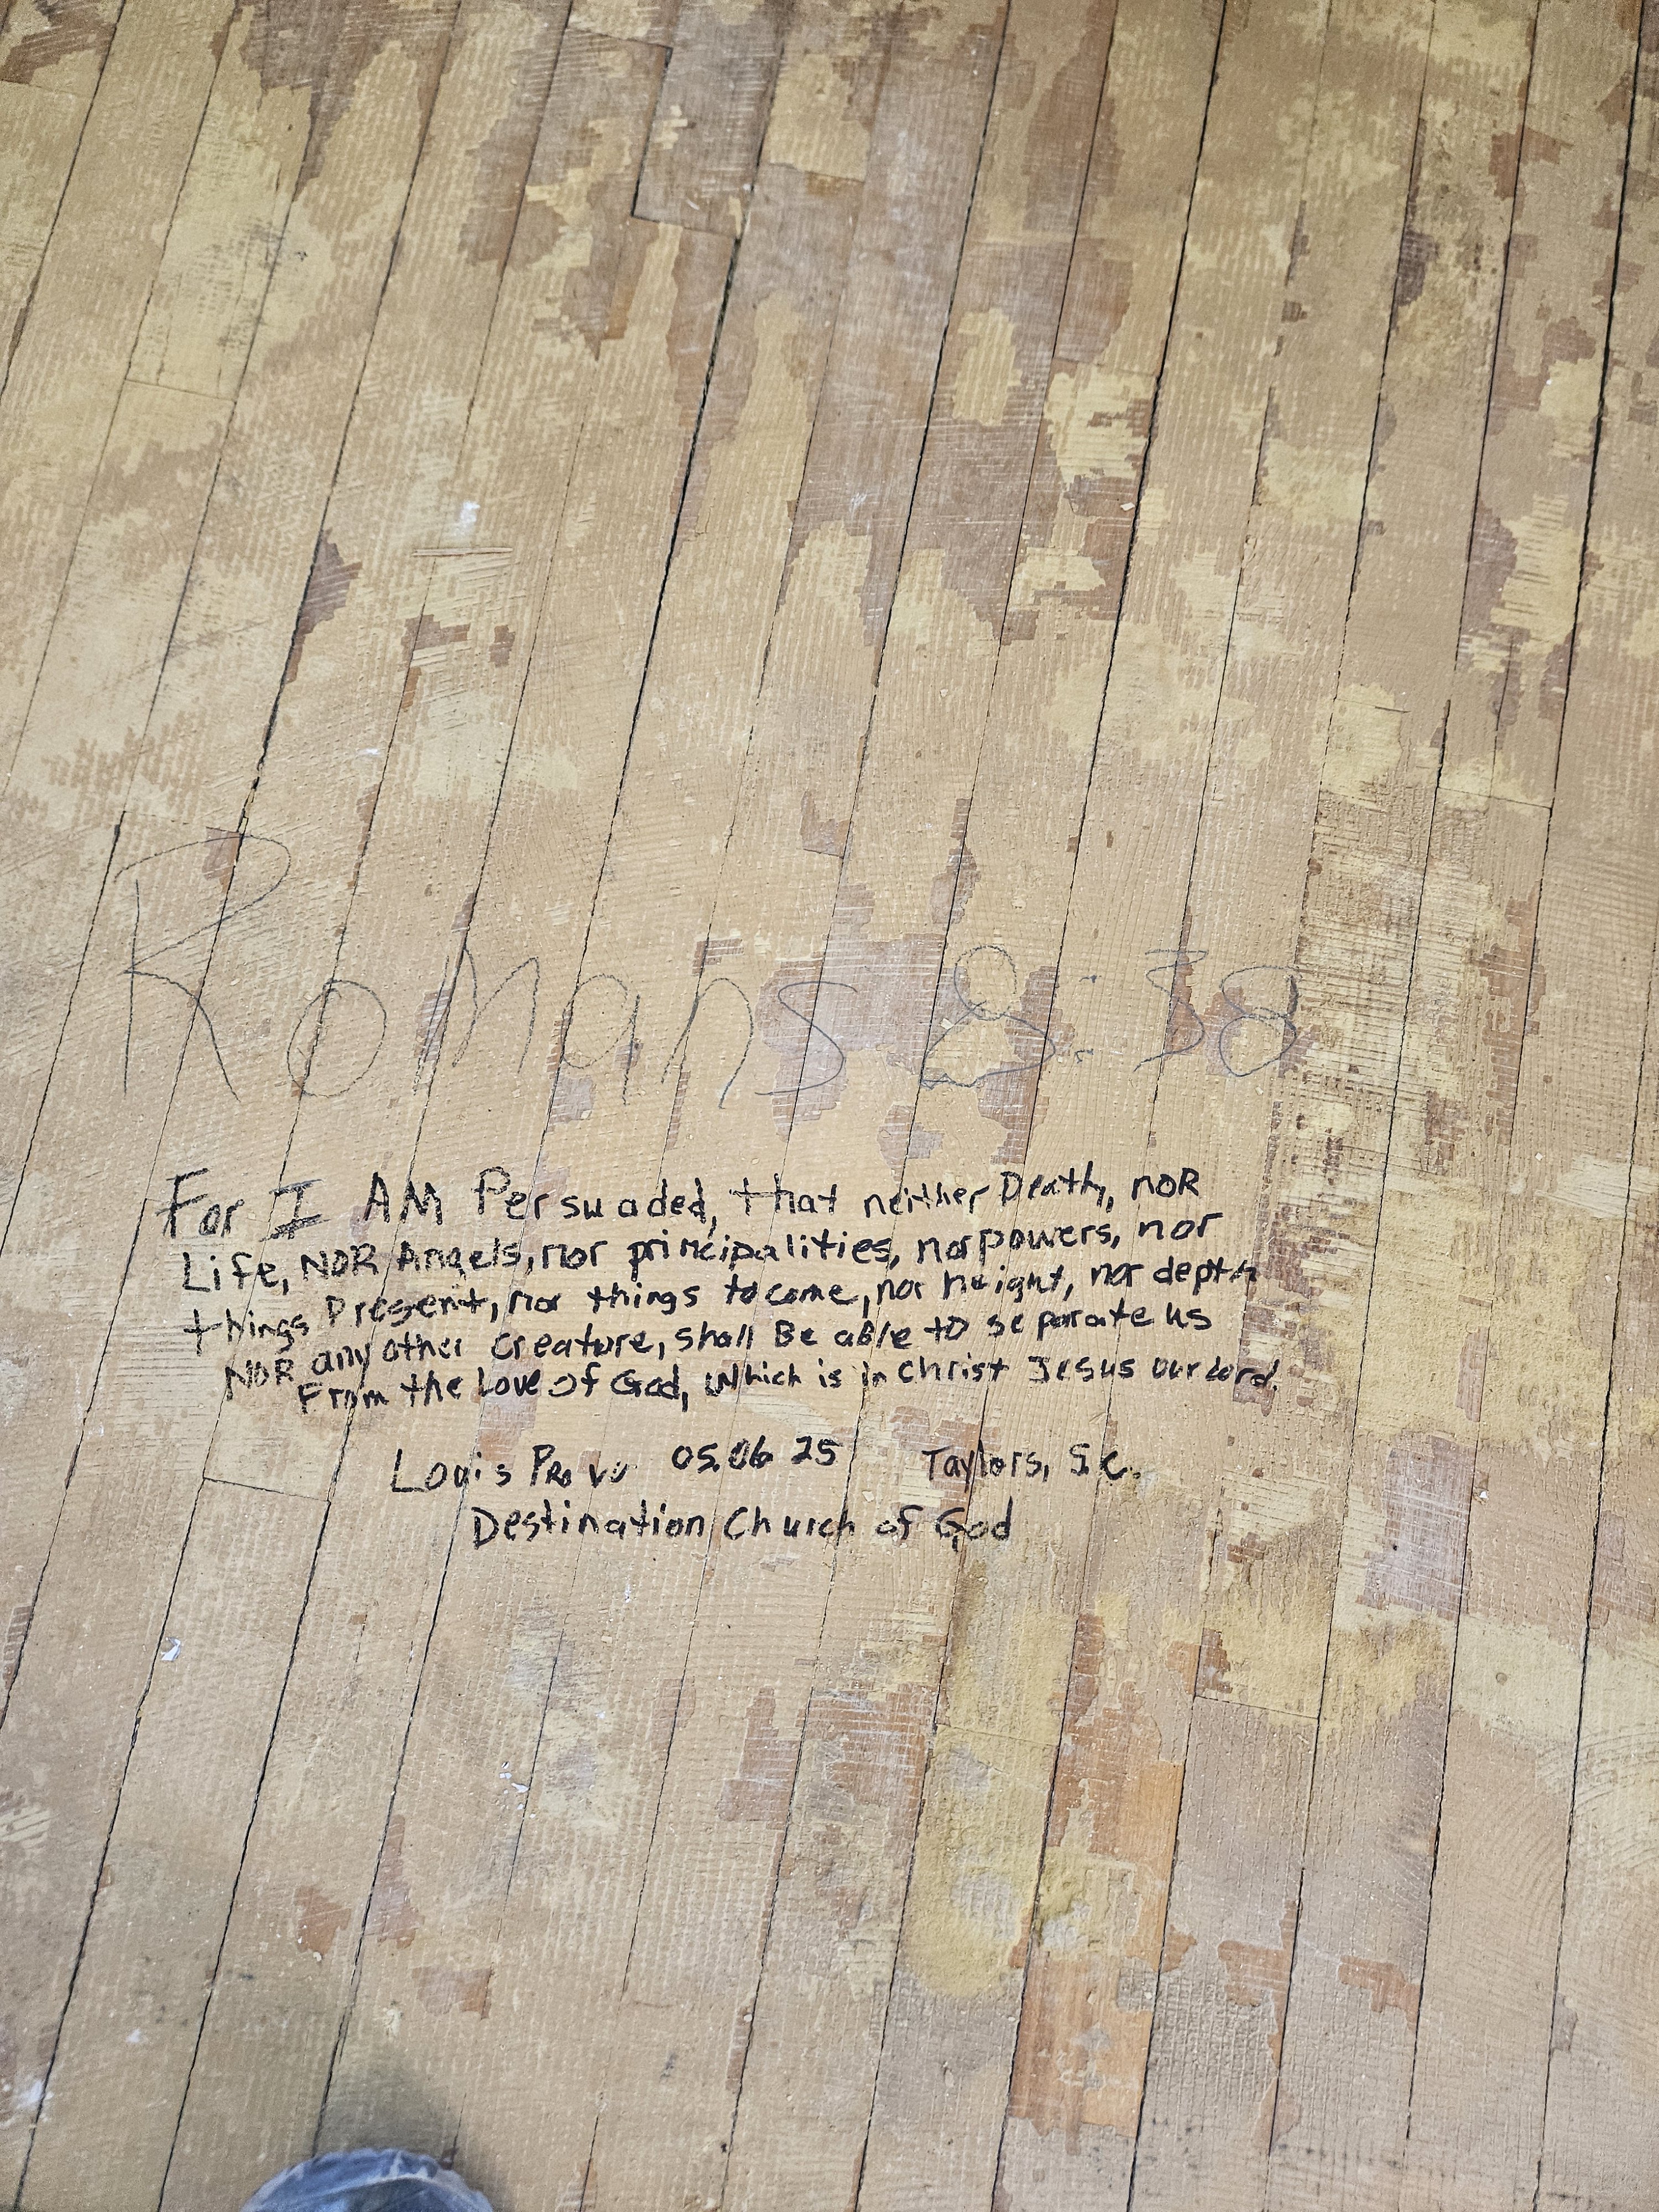 Romans 8:38
For I AM Persuaded, that neither Death, NOR
Life, NOR Angels, nor principalities, nor powers, nor
things Present, nor things to come, nor height, nor depth
NOR any other creature, shall Be able to separate us
From the Love of God, Which is in Christ Jesus our Lord.
Louis Provo 05.06 25 Taylors, S.C.
Destination Church of God